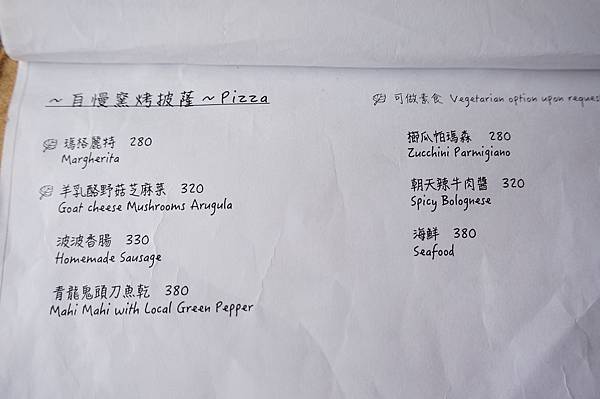 ～自慢窯烤披薩～Pizza
可做素食 Vegetarian option upon reques
瑪格麗特 280
Margherita
羊乳酪野菇芝麻菜 320
Goat cheese Mushrooms Arugula
波波香腸 330
Homemade Sausage
青龍鬼頭刀魚乾 380
Mahi Mahi with Local Green Pepper
櫛瓜帕瑪森 280
Zucchini Parmigiano
朝天辣牛肉醬 320
Spicy Bolognese
海鮮 380
Seafood